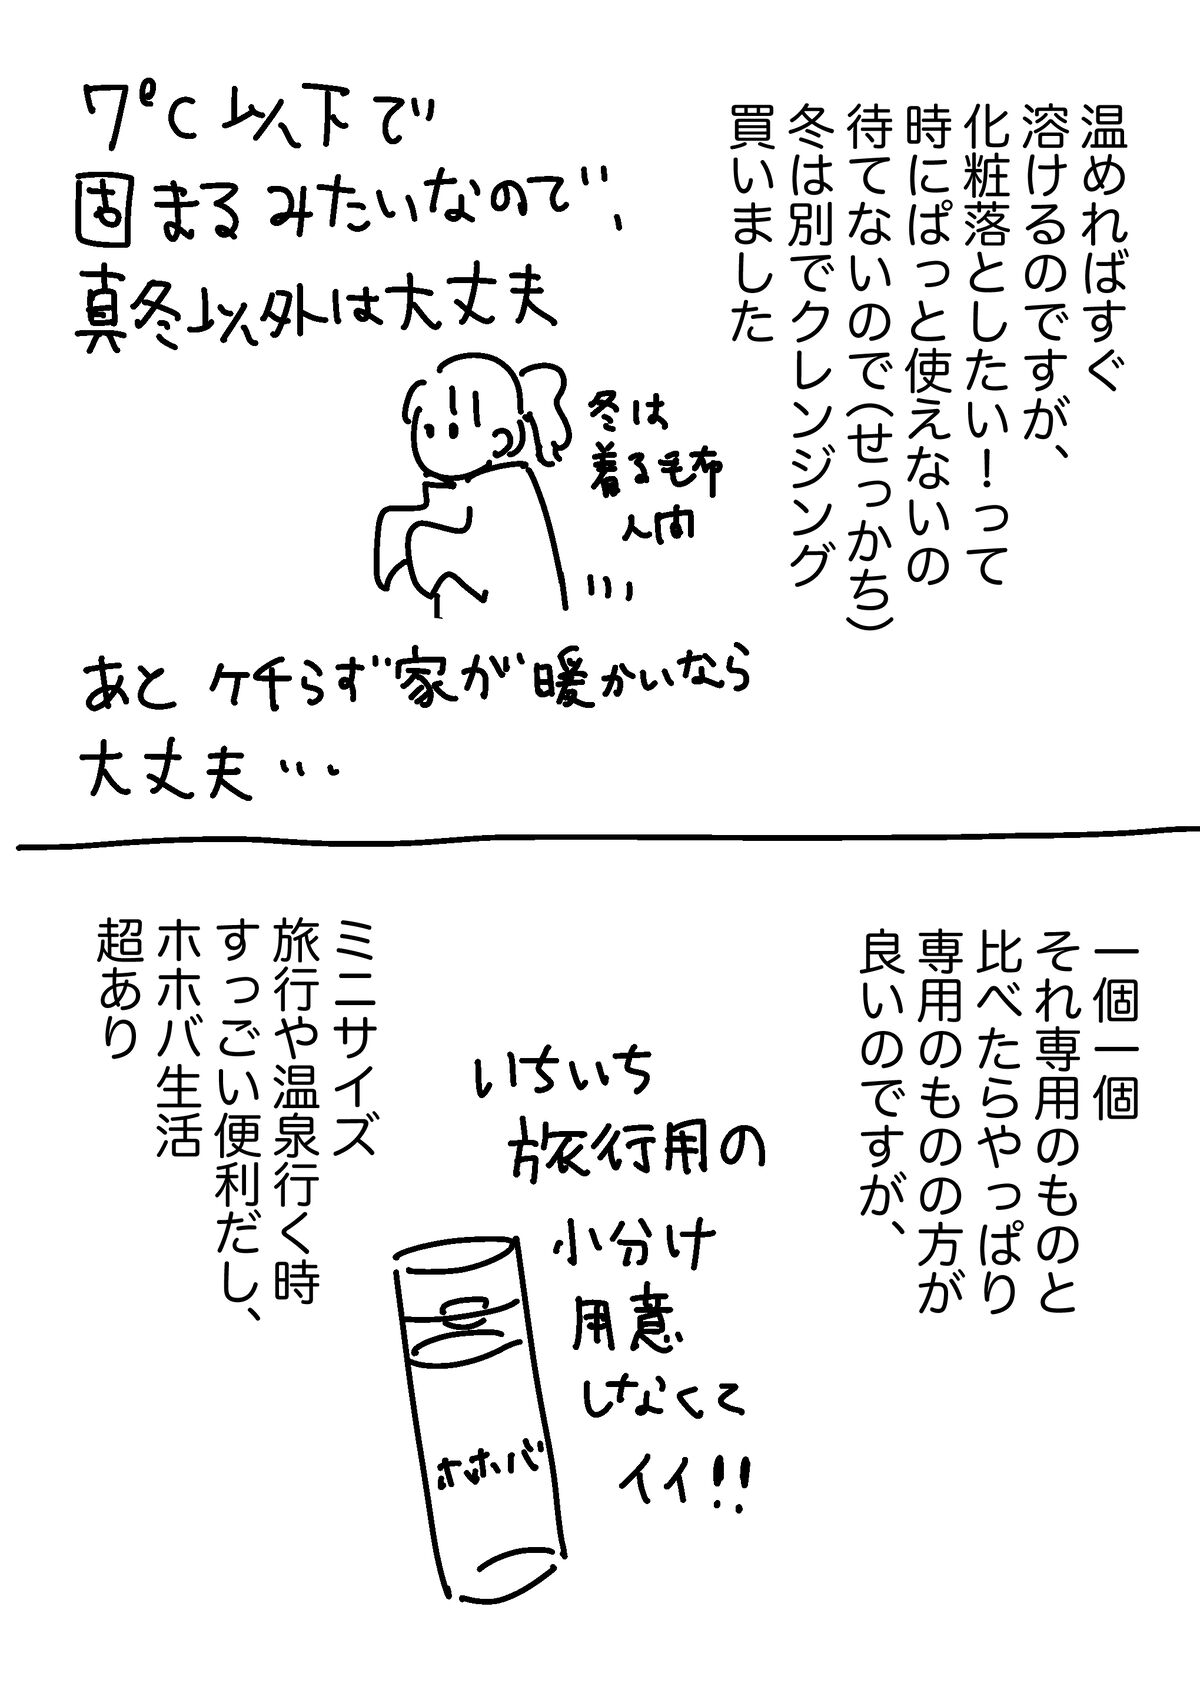 温めればすぐ
溶けるのですが、
化粧落としたい！って
時にぱっと使えないの
待てないので（せっかち）
冬は別でクレンジング
買いました
7℃以下で
固まるみたいなので、
真冬以外は大丈夫
冬は
着る毛布
人間
…
あと ケチらず家が暖かいなら
大丈夫…
一個一個
それ専用のものと
比べたらやっぱり
専用のものの方が
良いのですが、
いちいち
旅行用の
小分け
用意
しなくて
イイ!!
ホホバ
ミニサイズ
旅行や温泉行く時
すっごい便利だし、
ホホバ生活
超あり